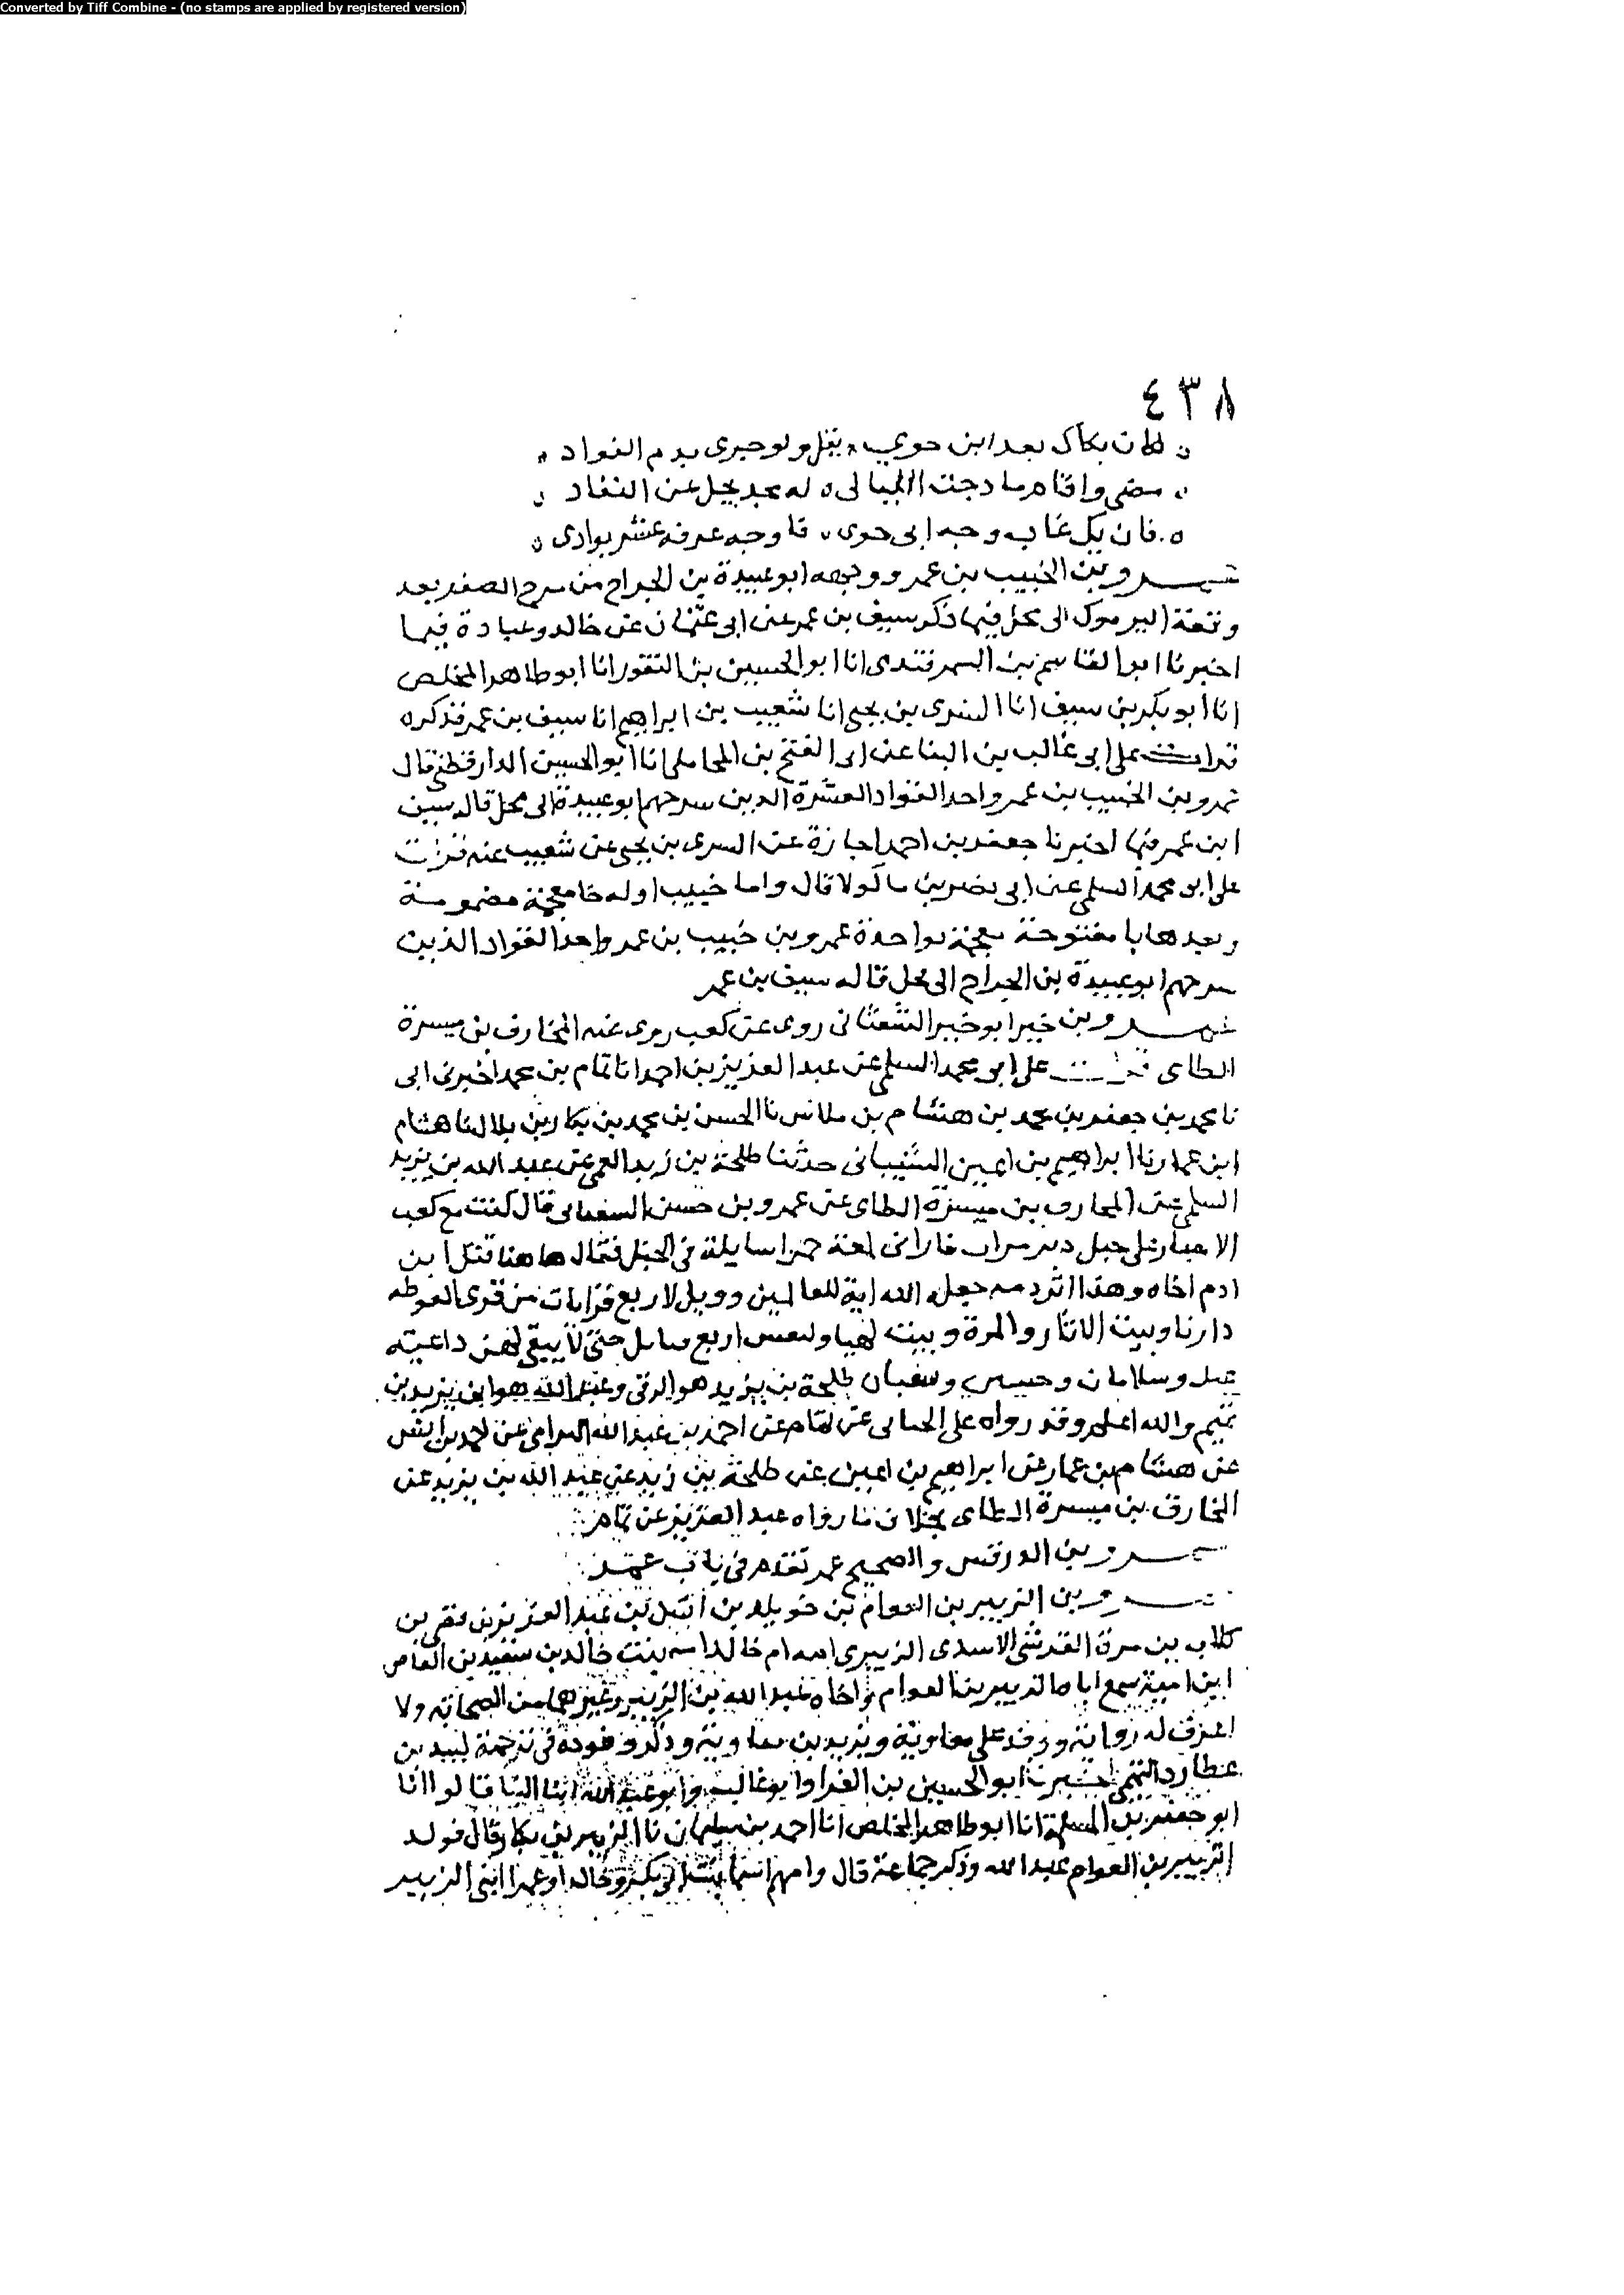 Converted by Tiff Combine - (no stamps are applied by registered version)
٤٣٨
بكاك بعد ابن حوي يقل ولو جرى بدم الفواد
مضى واقام ما دجت الليالى له مجد يجل عن النفاد
فان يك غاب وجه ابى حوى فاوجه عرفه عنتر بوادى
عمرو بن الخبيب بن عمرو وجهه ابو عبيدة بن الجراح من مرج الصفر بعد
وقعة اليرموك الى فحل فيما ذكر سيف بن عمر عن ابى عثمان عن خالد وعبادة فيما
اخبرنا ابو القاسم بن السمرقندى انا ابو الحسين بن النقور انا ابو طاهر المخلص
انا ابو بكر بن سيف انا السرى بن يحيى انا شعيب بن ابراهيم انا سيف بن عمر فذكره
قرات على ابى غالب بن البنا عن ابى الفتح بن المحاملى انا ابو الحسين الدارقطنى قال
عمرو بن الخبيب بن عمرو احد القواد العشرة الذين سرحهم ابو عبيدة الى فحل قاله سيف
ابن عمر فيما اخبرنا جعفر بن احمد اجازة عن السرى بن يحيى عن شعيب عنه قرات
على ابى محمد السلمى عن ابى نصر بن ماكولا قال واما خبيب اوله خا معجمة مضمومة
وبعدها با مفتوحة معجمة بواحدة عمرو بن خبيب بن عمرو احد القواد الذين
سرحهم ابو عبيدة بن الجراح الى فحل قاله سيف بن عمر
عمرو بن خير ابو خير الشعثانى روى عن كعب روى عنه المخارق بن ميسرة
الطاى قرات على ابى محمد السلمى عن عبد العزيز بن احمد انا تمام بن محمد اخبرنى ابى
نا محمد بن جعفر بن محمد بن هشام بن ملاس نا الحسن بن محمد بن بكار بن بلال نا هشام
ابن عمار نا ابراهيم بن اعين الشيبانى حدثنا طلحة بن زيد العمى عن عبد الله بن يزيد
السلمى عن المخارق بن ميسرة الطاى عن عمرو بن الشعثانى قال كنت مع كعب
الاحبار على جبل دير مران فارانى لمعة حمرا سايلة فى الجبل فقال هاهنا قتل ابن
ادم اخاه وهذا اثر دمه جعله الله اية للعالمين وويل لاربع قرايات من قرى الغوطه
داريا وبيت الاثار والمزة وبيت لهيا وليس اربع حتى لا يبقى لهن داعية
وسلامان وسفيان طلحة بن يزيد هو الرقى وعبد الله هو ابن يزيد بن
تميم والله اعلم وقد رواه على الحناى عن تمام عن احمد بن عبد الله البرامى عن احمد بن انس
عن هشام بن عمار عن ابراهيم بن اعين عن طلحة بن زيد عن عبد الله بن يزيد عن
المخارق بن ميسرة الطاى بخلاف ما رواه عبد العزيز عن تمام
عمرو بن الدرفس والصحيح عمر تقدم فى باب عمر
عمرو بن الزبير بن العوام بن خويلد بن اسد بن عبد العزى بن قصى بن
كلاب بن مرة القرشى الاسدى الزبيرى امه ام خالد امة بنت خالد بن سعيد بن العاص
ابن امية سمع اباه الزبير بن العوام واخاه عبد الله بن الزبير وغيرهما من الصحابة ولا
اعرف له رواية ووفد على معاوية ويزيد بن معاوية وذكر وفوده فى ترجمة لبيد بن
عطارد التميمى اخبرنا ابو الحسين بن الفرا وابو غالب وابو عبد الله ابنا البنا قالوا انا
ابو جعفر بن المسلمة انا ابو طاهر المخلص انا احمد بن سليمان نا الزبير بن بكار قال فولد
الزبير بن العوام عبد الله وذكر جماعة قال وامهم اسما بنت ابى بكر وخالدا وعمرا ابنى الزبير